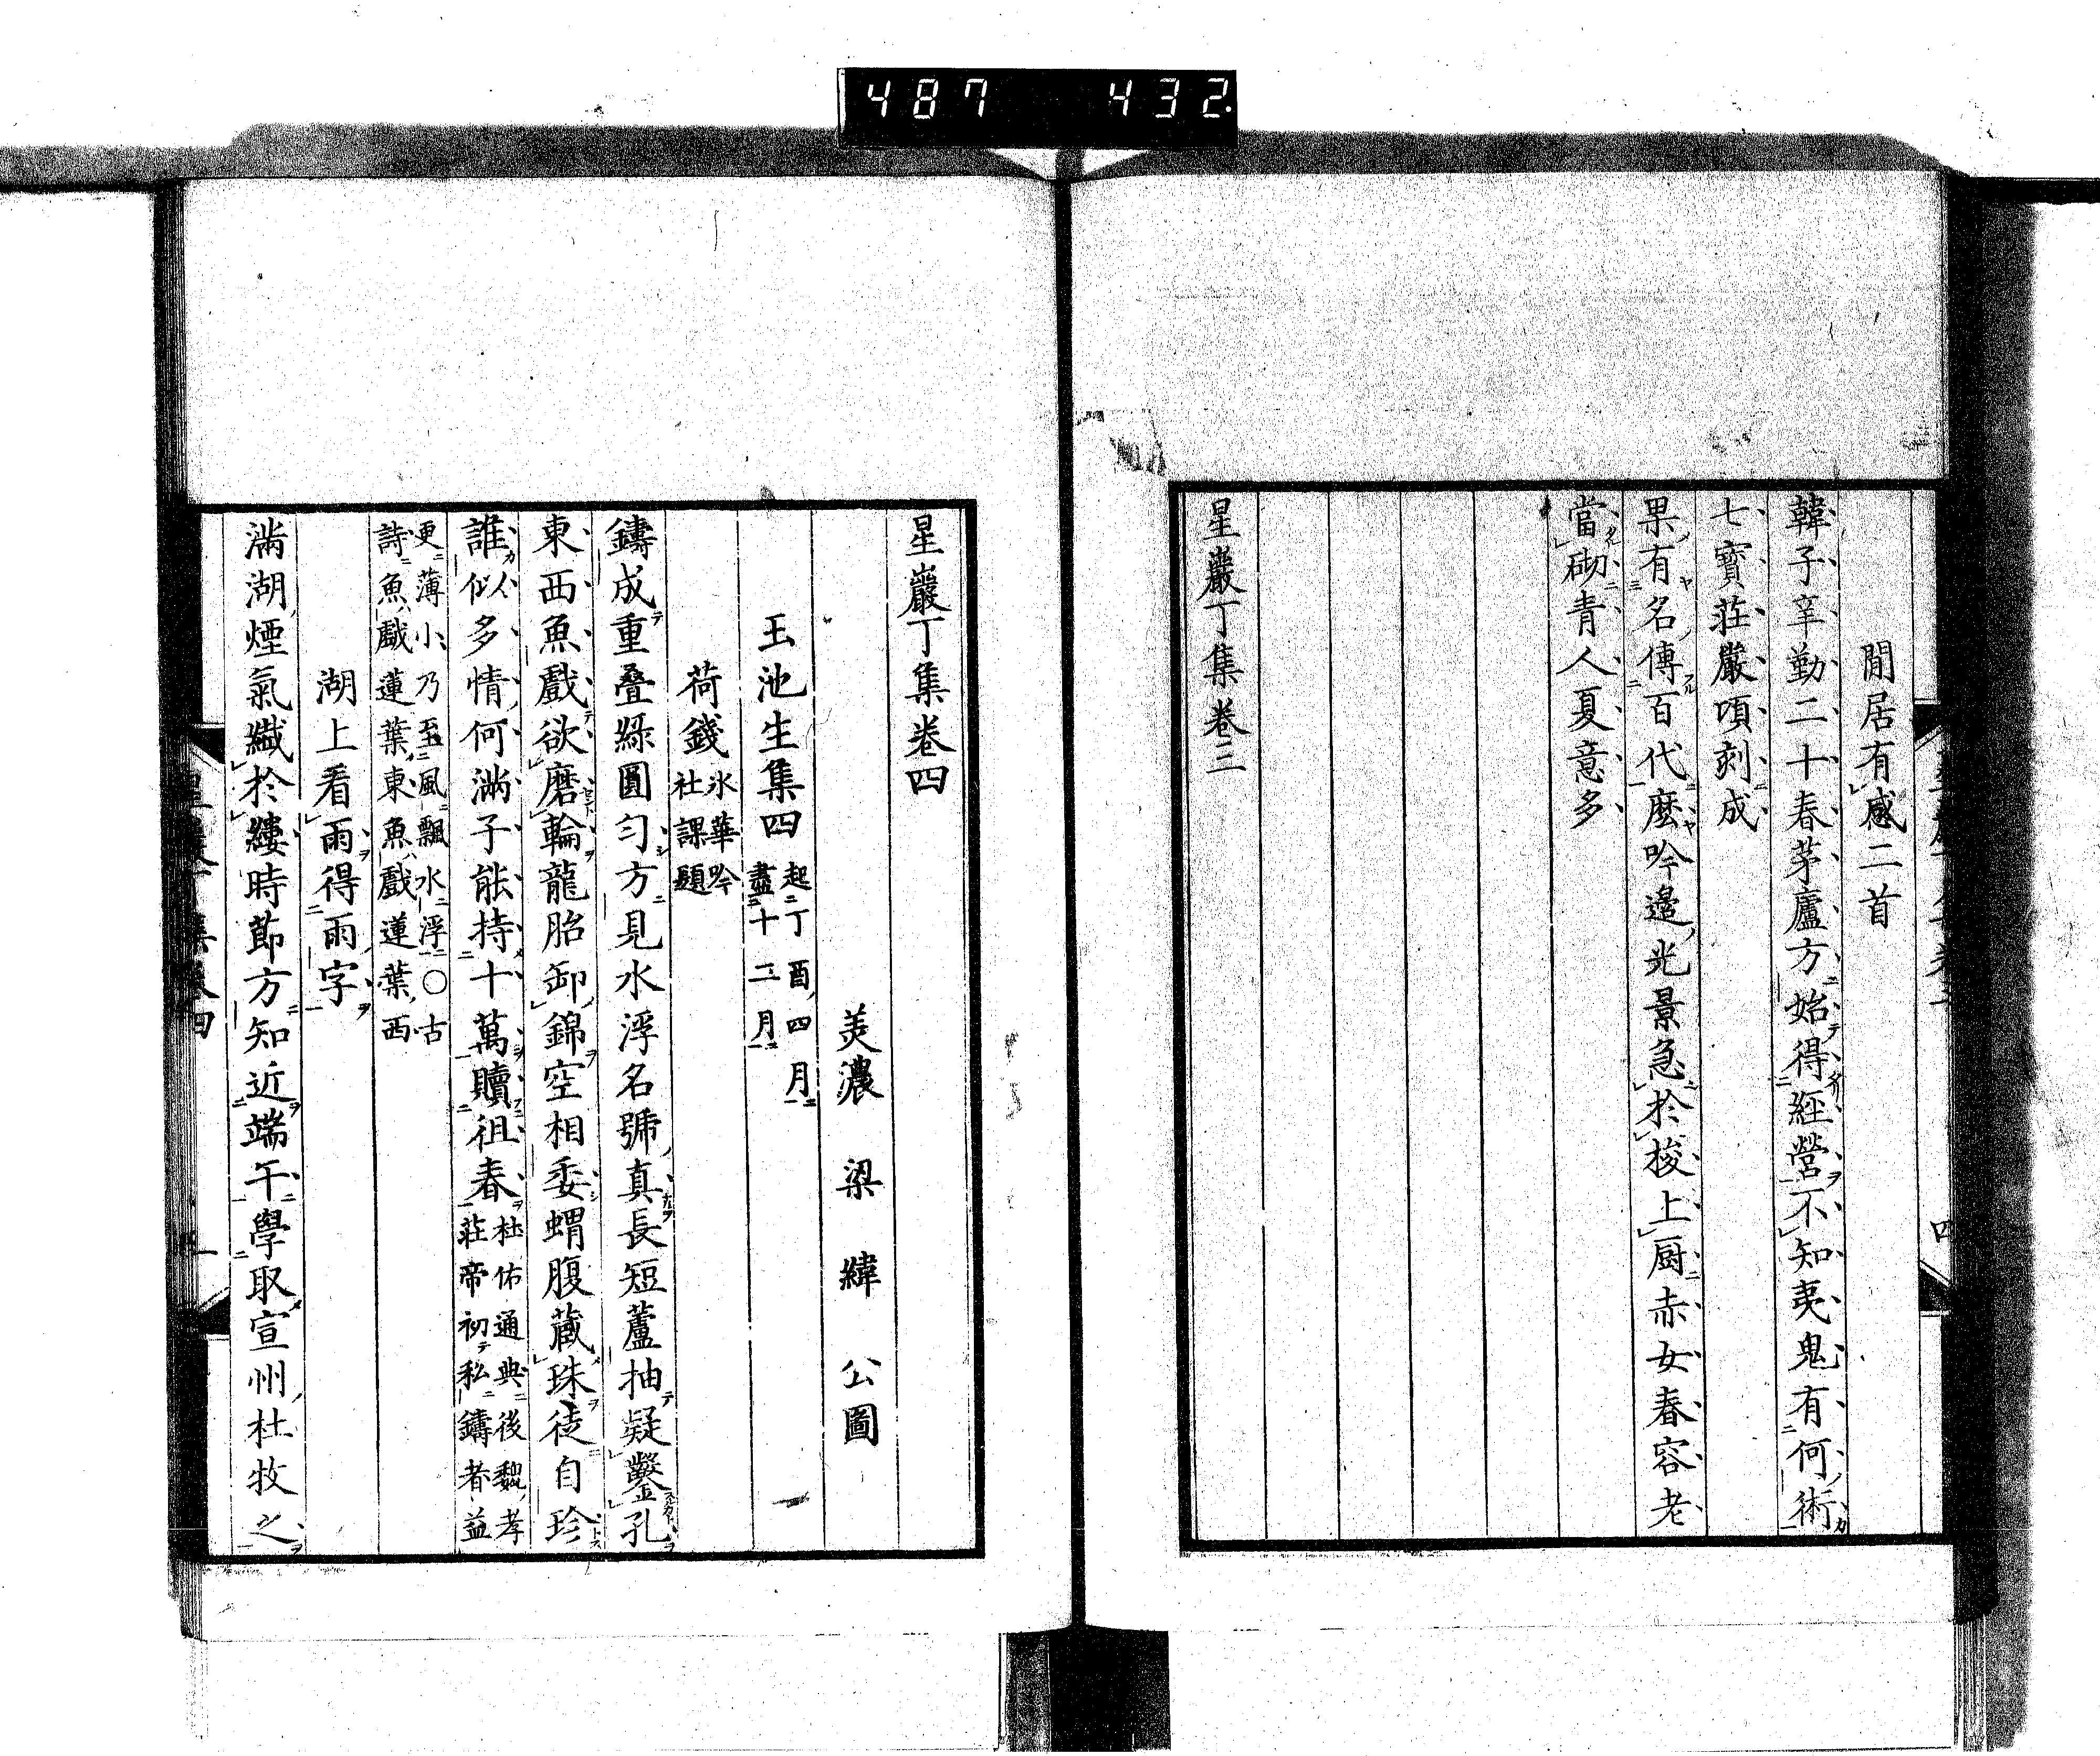 487 432
閒居有感二首
韓子辛勤二十春茅廬方始得經營不知夷鬼有何術
七寶莊嚴頃刻成
果有名傳百代麼吟邊光景急於梭上厨赤女春容老
當砌青人夏意多
星巖丁集卷三
四
星巖丁集卷四
美濃 梁緯 公圖
玉池生集四 起丁酉四月
盡十二月
荷錢 氷華吟
社課題
鑄成重疊綠圓勻方見水浮名號真長短蘆抽疑鑿孔
東西魚戲欲磨輪龍胎卸錦空相委蝟腹藏珠徒自珍
誰似多情何滿子能持十萬贖徂春 杜佑通典後魏孝
莊帝初私鑄者益
更薄小乃至風飄水浮〇古
詩魚戲蓮葉東魚戲蓮葉西
湖上看雨得雨字
滿湖煙氣纖於縷時節方知近端午學取宣州杜牧之
星巖丁集卷四
一